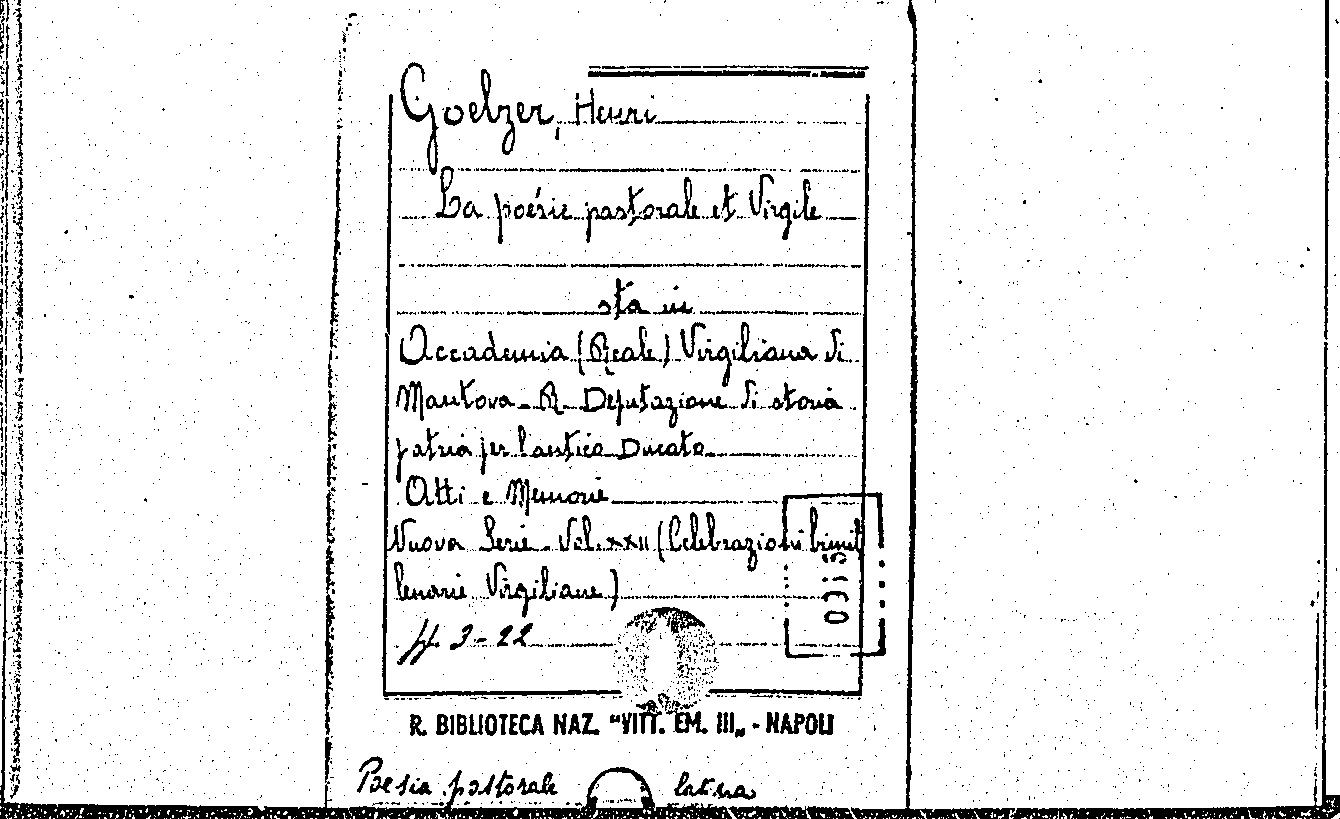 Goelzer, Henri
La poésie pastorale et Virgile
sta in
Accademia (Reale) Virgiliana di
Mantova - R. Deputazione di storia
patria per l'antico Ducato
Atti e Memorie
Nuova Serie - Vol. XXII (Celebrazioni bimil
lenarie Virgiliane)
pp. 3-22
R. BIBLIOTECA NAZ. "VITT. EM. III„ - NAPOLI
Poesia pastorale latina